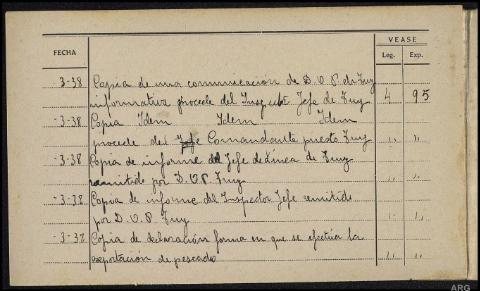 VEASE
FECHA Leg. Exp.
-3-38 Copia de una comunicacion de D.O.P. de Iruy
informativa procede del Insp Jefe de Iruy 4 95
-3-38 Copia Idem Idem Idem
procede del Comandante puesto Iruy " "
-3-38 Copia de informe del Jefe de Línea de Iruy
remitido por D.O.P. Iruy " "
-3-38 Copia de informe del Inspector Jefe remitido
por D.O.P. Iruy " "
-3-38 Copia de declaración forma en que se efectúa la
exportacion de pescado " "
ARG